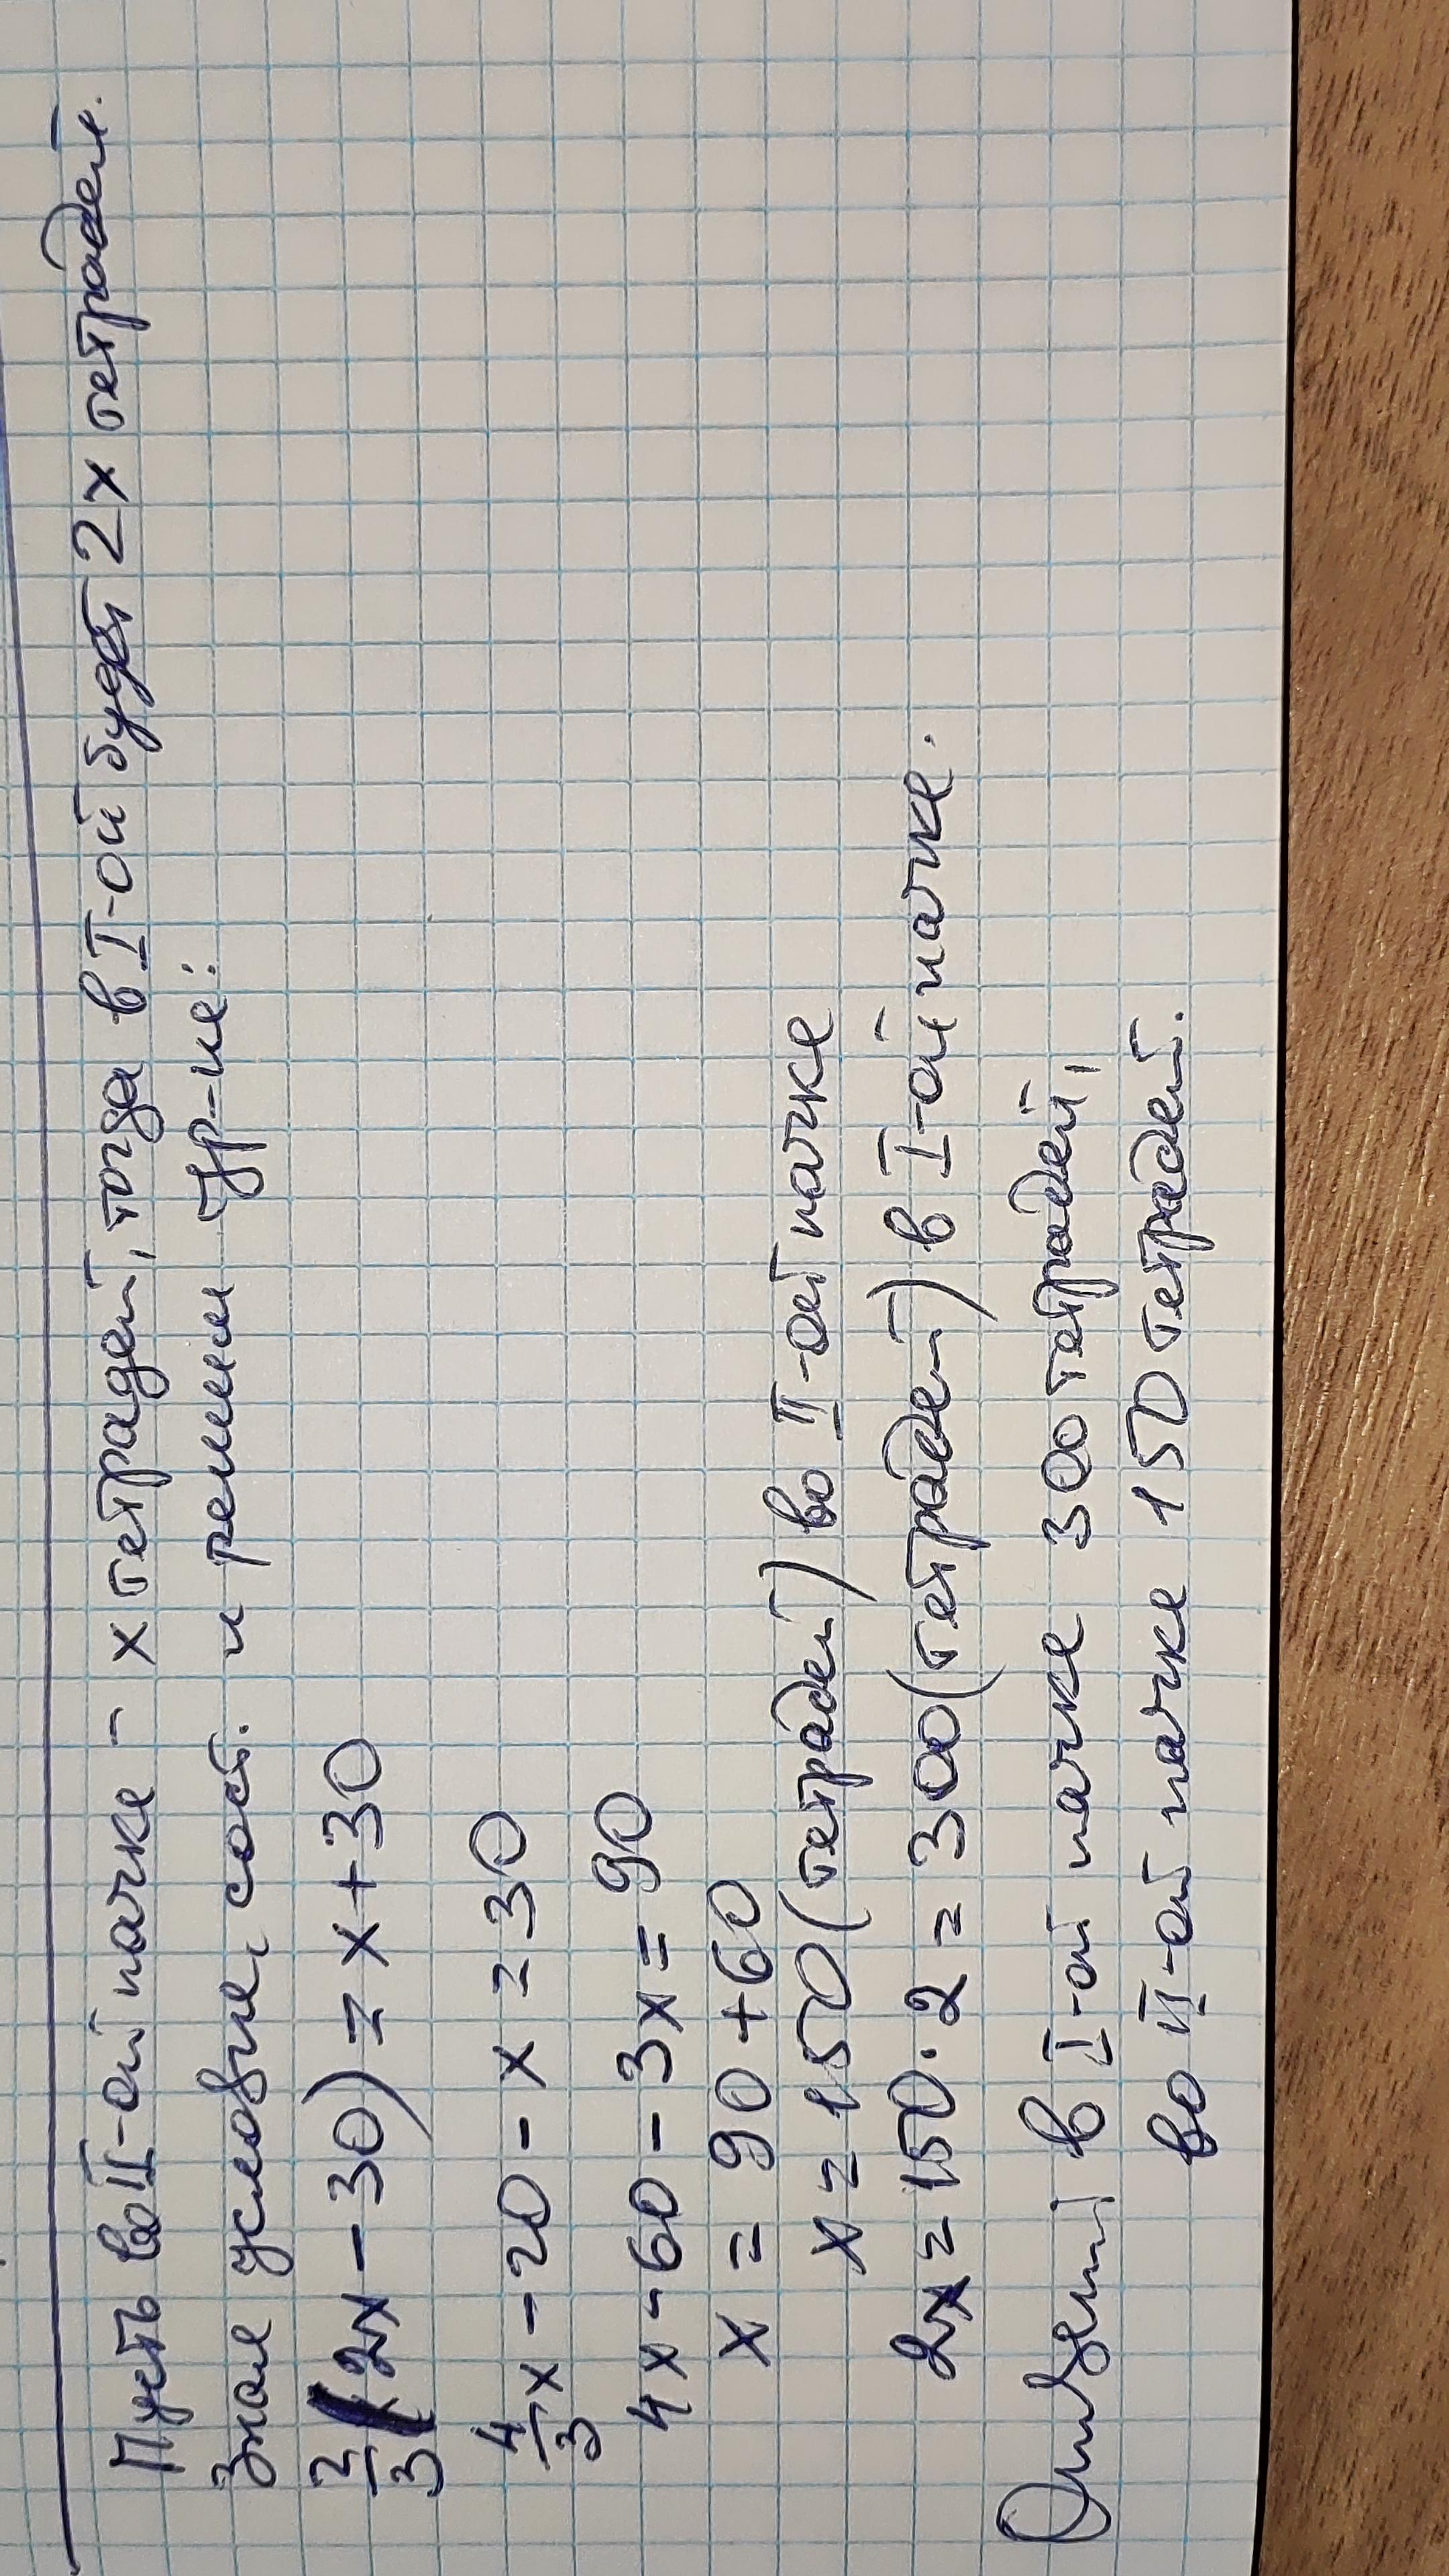 Пусть во II-ой пачке - x тетрадей, тогда в I-ой будет 2x тетрадей.
Зная условие, сост. и решим ур-ие:
2/3 (2x - 30) = x + 30
4/3 x - 20 - x = 30
4x - 60 - 3x = 90
x = 90 + 60
x = 150 (тетрадей) во II-ой пачке
2x = 150 · 2 = 300 (тетрадей) в I-ой пачке.
Ответ: в I-ой пачке 300 тетрадей,
во II-ой пачке 150 тетрадей.